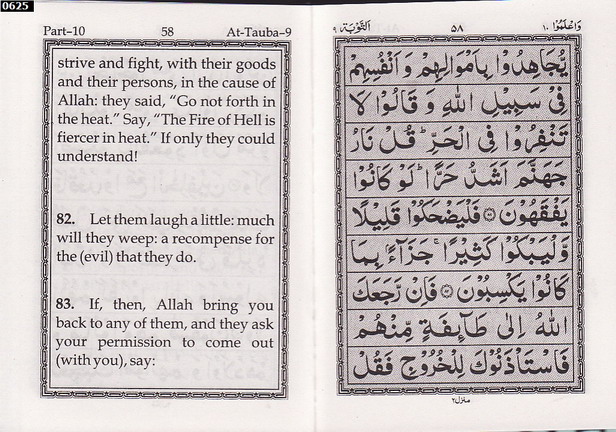 0625
Part–10 58 At-Tauba–9
strive and fight, with their goods
and their persons, in the cause of
Allah: they said, “Go not forth in
the heat.” Say, “The Fire of Hell is
fiercer in heat.” If only they could
understand!
82. Let them laugh a little: much
will they weep: a recompense for
the (evil) that they do.
83. If, then, Allah bring you
back to any of them, and they ask
your permission to come out
(with you), say:
وَاعْلَمُوْٓا ١٠ ٥٨ اَلتَّوْبَة ٩
يُّجَاهِدُوْا بِاَمْوَالِهِمْ وَ اَنْفُسِهِمْ
فِيْ سَبِيْلِ اللّٰهِ وَ قَالُوْا لَا
تَنْفِرُوْا فِى الْحَرِّ ؕ قُلْ نَارُ
جَهَنَّمَ اَشَدُّ حَرًّا ؕ لَوْ كَانُوْا
يَفْقَهُوْنَ ﴿٨١﴾ فَلْيَضْحَكُوْا قَلِيْلًا
وَّلْيَبْكُوْا كَثِيْرًا ۚ جَزَآءًۢ بِمَا
كَانُوْا يَكْسِبُوْنَ ﴿٨٢﴾ فَاِنْ رَّجَعَكَ
اللّٰهُ اِلٰى طَآئِفَةٍ مِّنْهُمْ
فَاسْتَاْذَنُوْكَ لِلْخُرُوْجِ فَقُلْ
منزل ٢